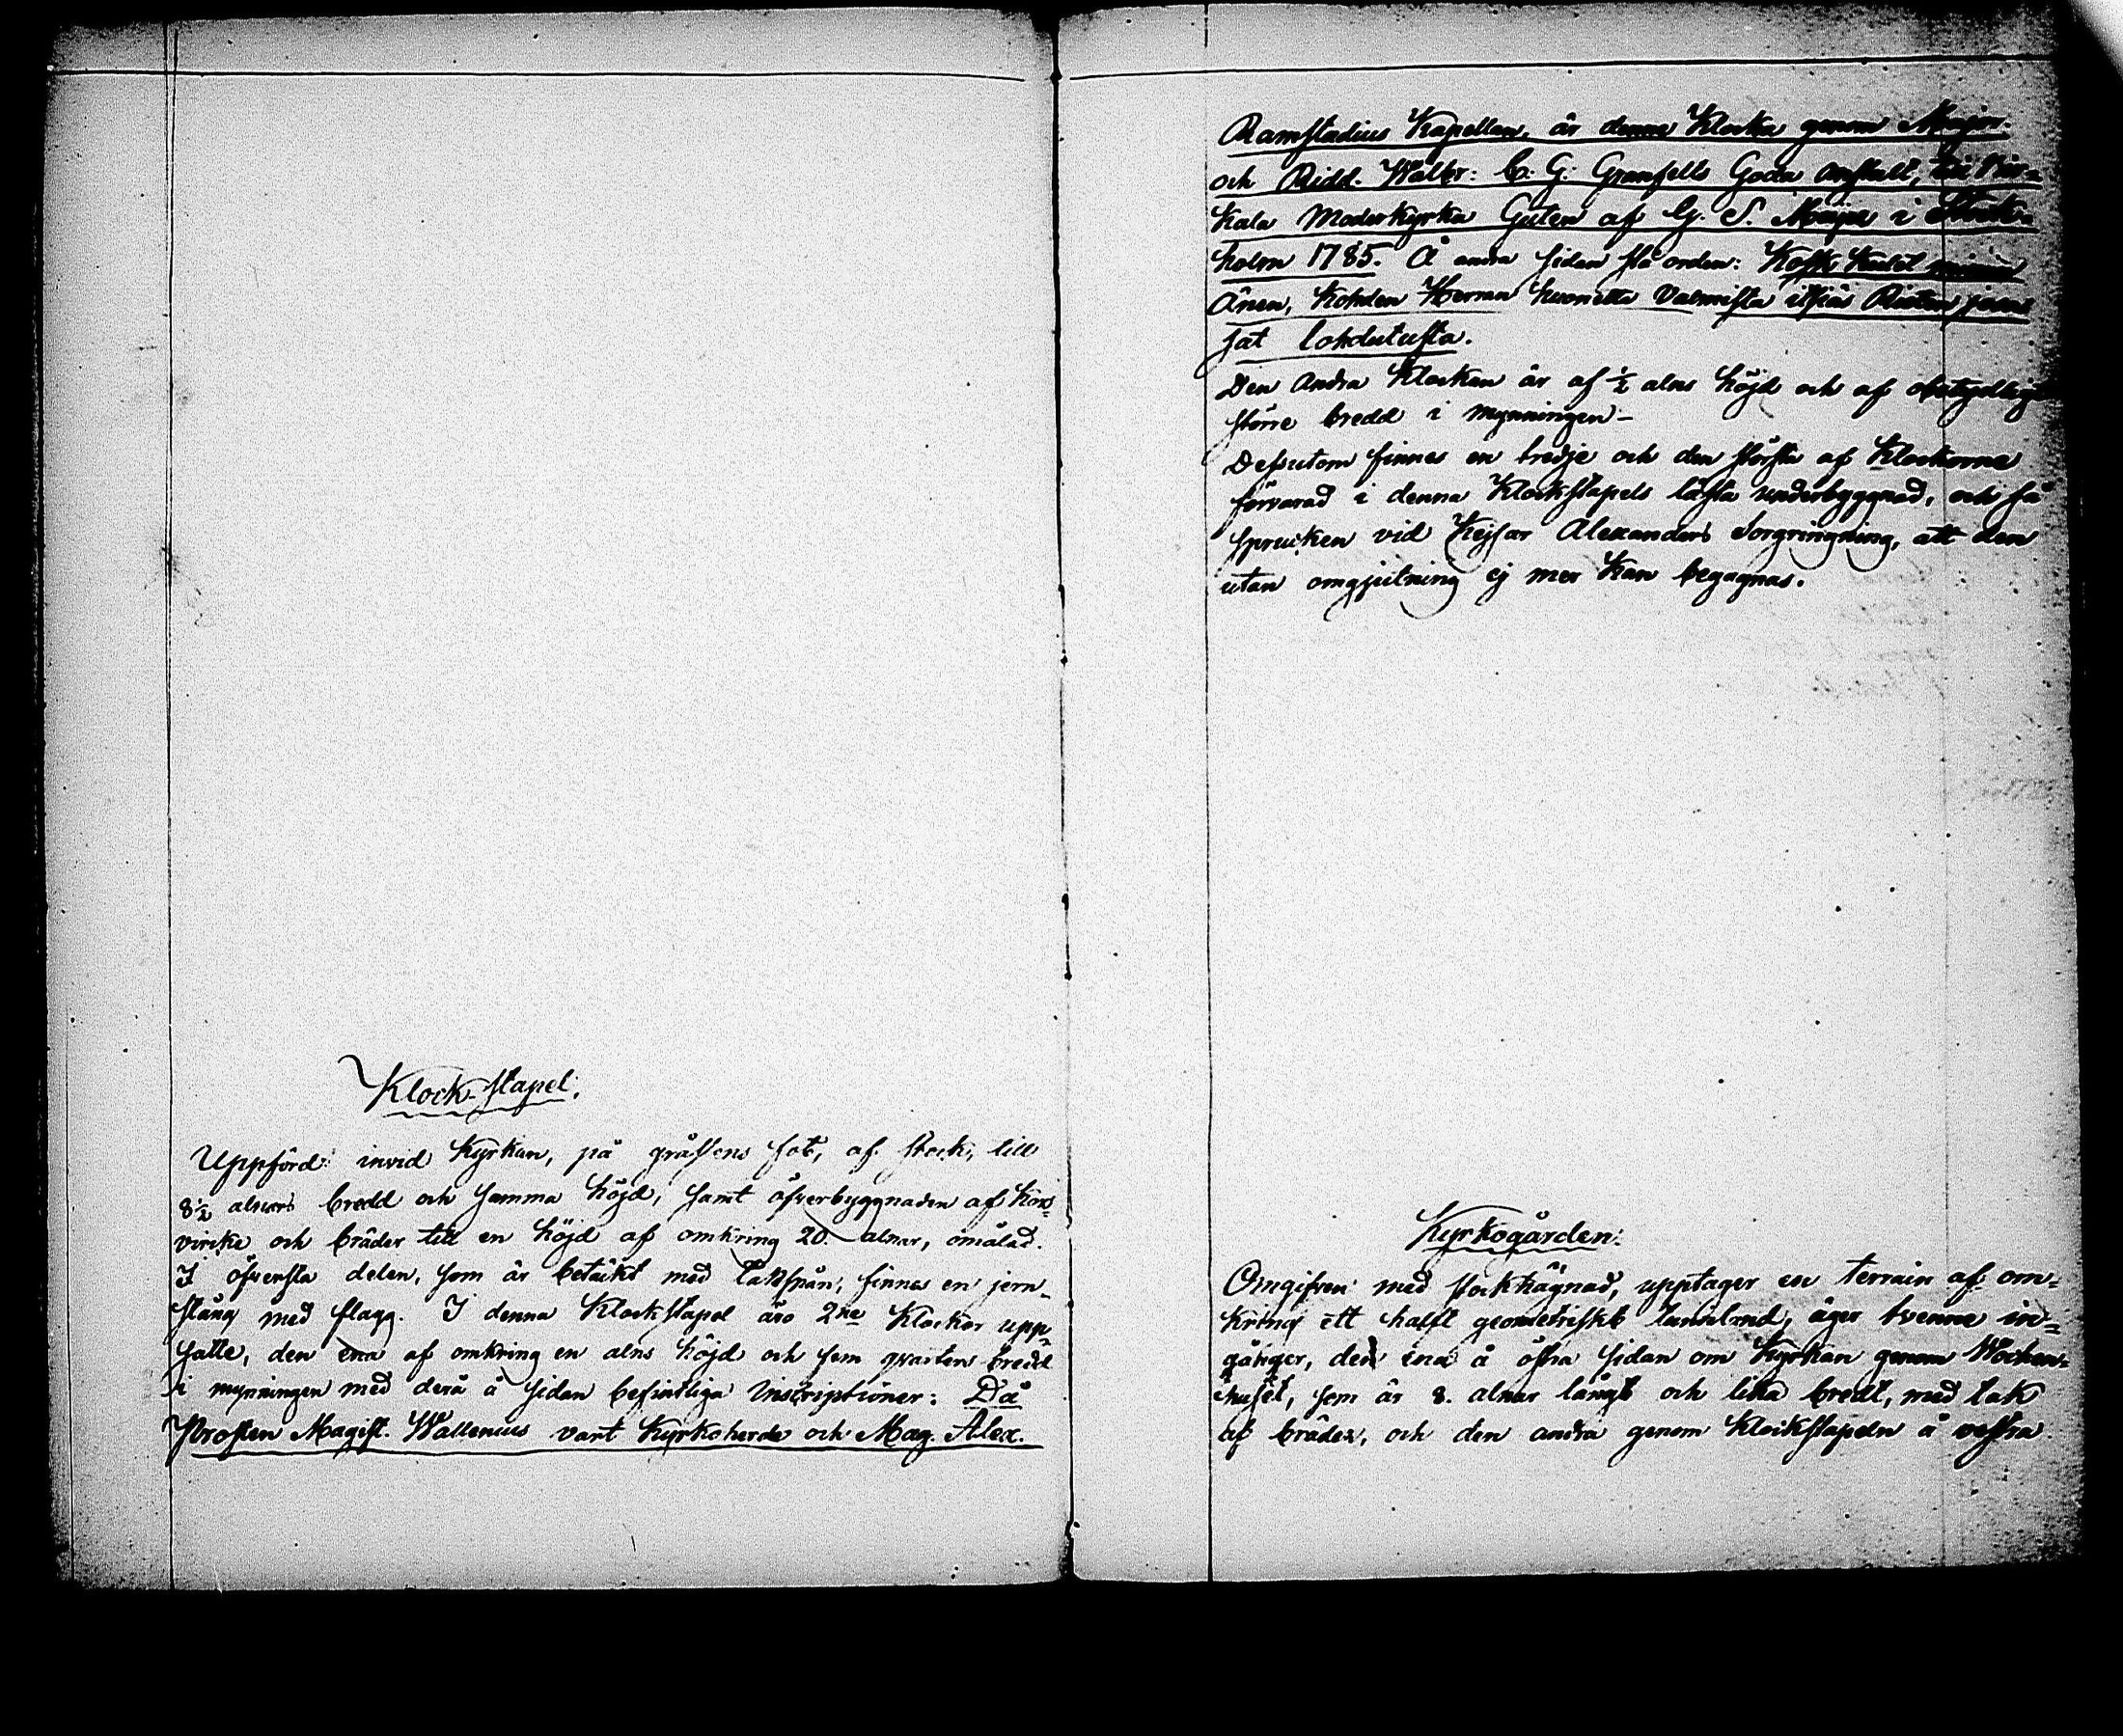 Klock-stapel:
Uppförd invid Kyrkan, på gråstens fot, af stock, till
8½ alnars bredd och samma höjd, samt öfverbyggnaden af kors-
virike och bräder till en höjd af omkring 20. alnar, omålad.
I öfversta delen, som är betäkt med takspån, finnes en jern-
stång med flagg. I denna Klockstapel äro 2ne Klockor upp-
satte, den ena af omkring en alns höjd och fem qvarters bredd
i mynningen med derå å sidan befintliga Inscriptioner: Då
Prosten Magist. Wallenius vart Kyrkoherde och Mag. Alex.
Ramstadius Kapellan, är denna Klocka genom Major
och Ridd. Wälbr: C. G. Granfells Goda anstalt, till Vir-
kala Moderkyrka Guten af G. S. Meijer i Stock-
holm 1785. Å andra sidan stå orden: Koska Kulet minun
Änen, Kohden Herran huonetta Valmista itsiäs Rientan jneus
sat lohdutusta.
Den Andra Klockan är af ½ alns höjd och af obetydligt
större bredd i mynningen-
Dessutom finnes en tredje och den största af Klockorne
förvarad i denna Klockstapels låsta underbyggnad, och så
sprucken vid Kejsar Alexanders Sorgringning, att den
utan omgjutning ej mer kan begagnas.
Kyrkogården:
Omgifven med stockhägnad, upptager en terrain af om-
kring ett halft geometriskt tunnland, äger tvenne in-
gånger, den ena å östra sidan om Kyrkan genom Wåcken-
huset, som är 8. alnar långt och lika bredt, med tak
af bräder, och den andra genom Klockstapeln å vestra